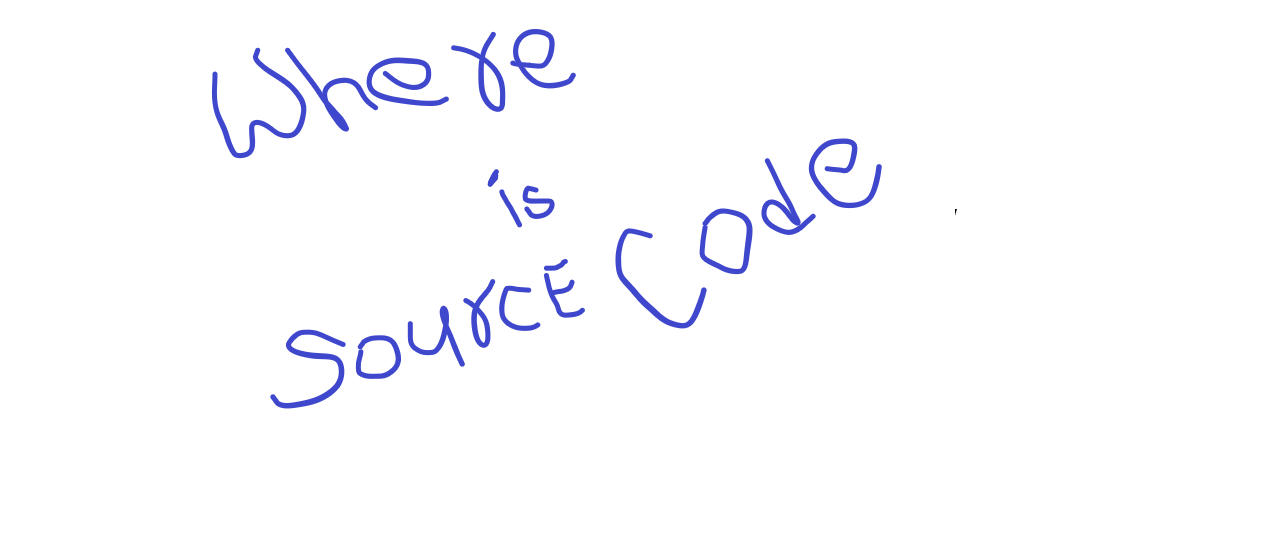 Where
is
SourcE Code